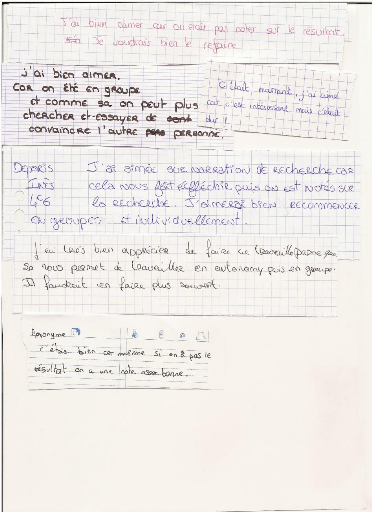 J'ai bien aimer car on était pas noter sur le résultat.
Je voudrais bien le refaire
j'ai bien aimer.
Car on été en groupe
et comme sa on peut plus
chercher et essayer de
convaincre l'autre personne.
C'était marrant, j'ai aimé
car c'est intéressant mais c'était
dur !
Deparis J'ai aimée sur narration de recherche car
Inès cela nous fait réfléchir puis on est notés sur
4°6 la recherche. J'aimerai bien recommencer
en groupes et individuellement.
j'ai très bien apprécier de faire ce travaille
sa nous permet de travailler en autonomy puis en groupe.
Il faudrait en faire plus souvent.
Anonyme
c'était bien car même si on a pas le
résultat on a une note assez bonne.